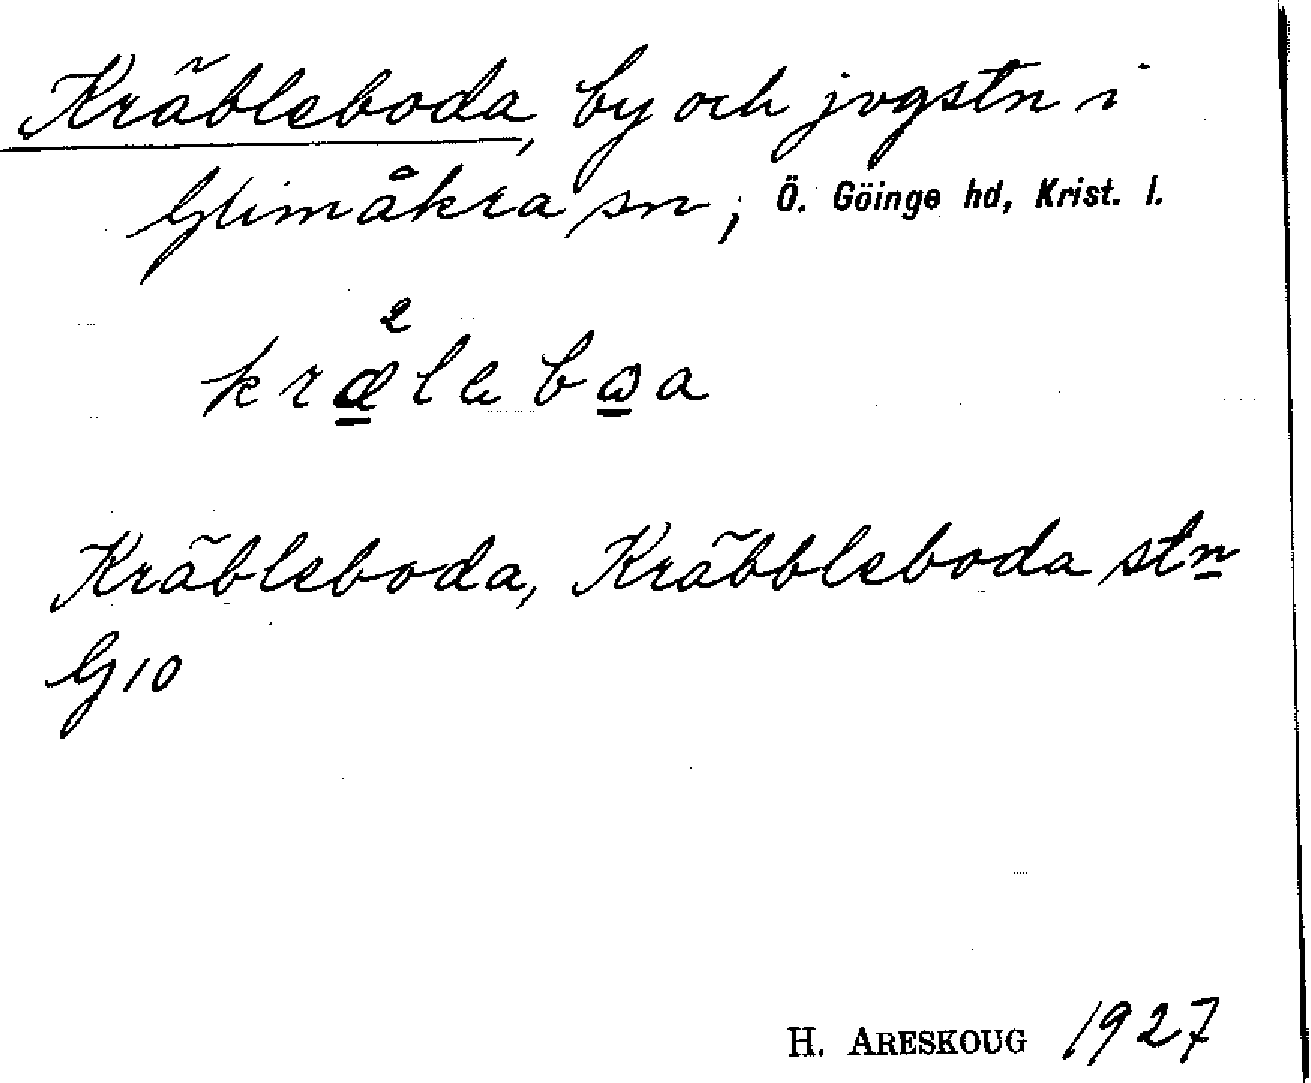 Kräbleboda, by och jvgstn i
Glimåkra sn, Ö. Göinge hd, Krist. l.
Kräbleboda, Kräbbleboda stn
G10
H. ARESKOUG 1927